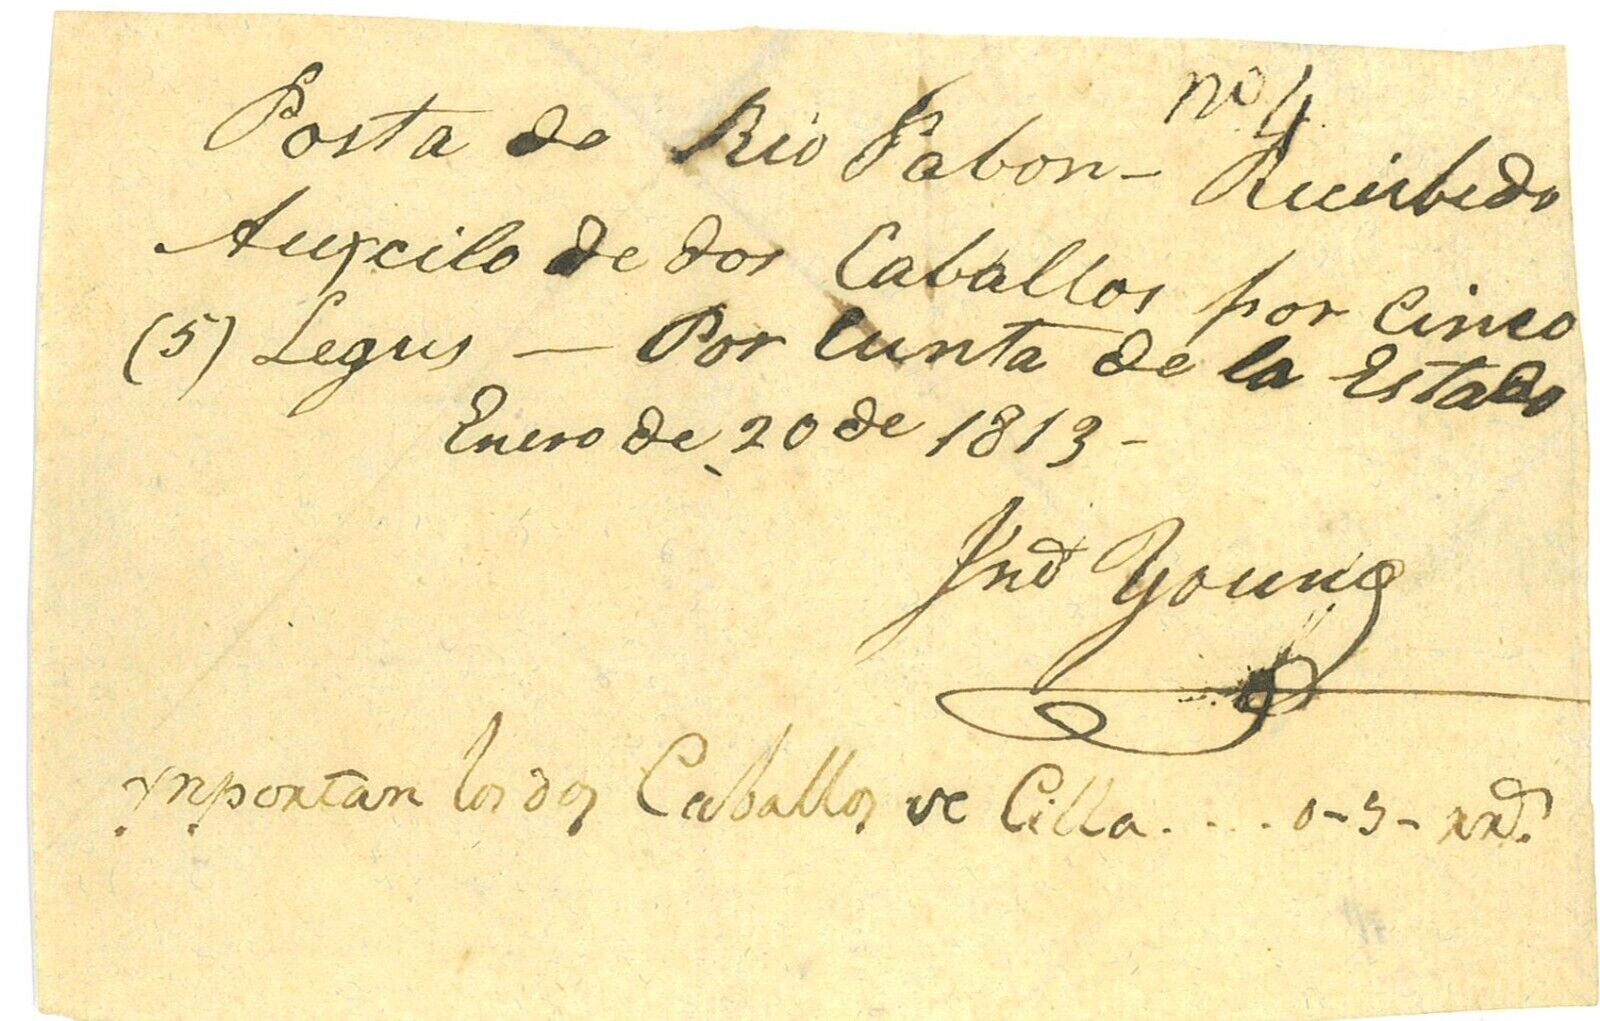 no 4
Posta de Rio Pabon - Reciibedo
Auxcilo de dos Caballos por Cinco
(5) Legus — Por Cunta de la Estado
Enero de 20 de 1813 -
Jno Young
ynportan los dos Caballos de Cilla.... 0-5- rrs.